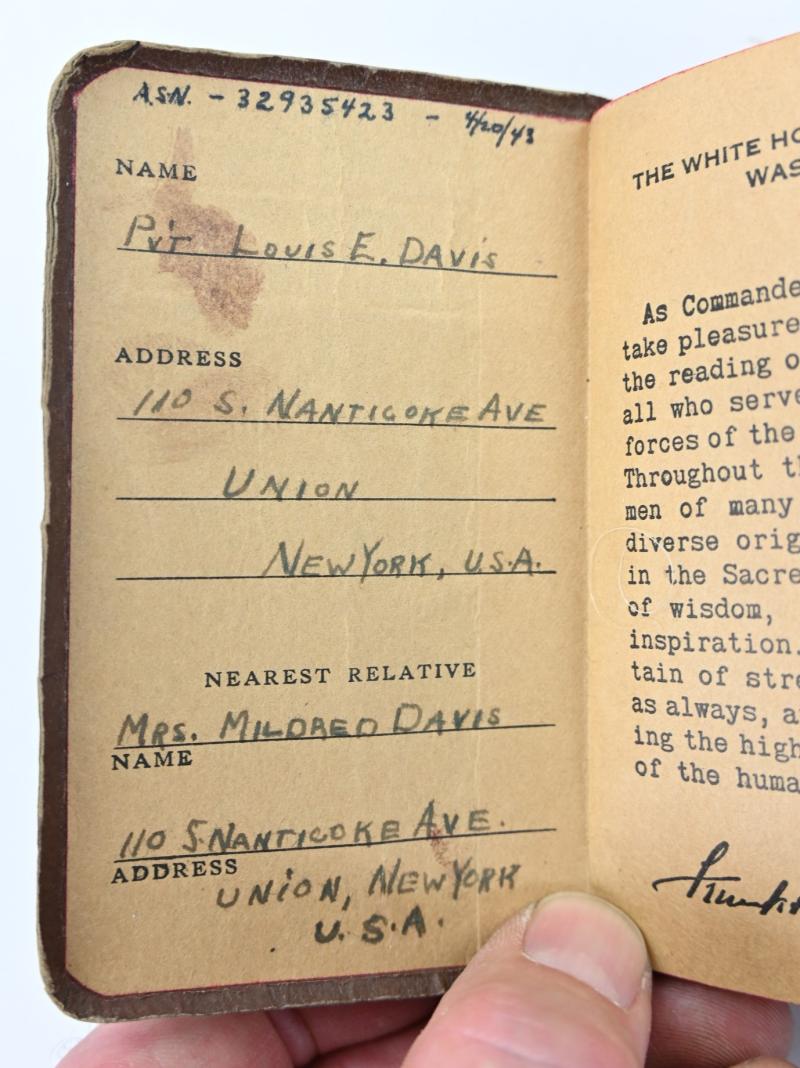 A.S.N. - 32935423 - 4/20/43
NAME
PVT LOUIS E. DAVIS
ADDRESS
110 S. NANTICOKE AVE
UNION
NEW YORK, U.S.A.
NEAREST RELATIVE
MRS. MILDRED DAVIS
NAME
110 S. NANTICOKE AVE.
ADDRESS
UNION, NEW YORK
U.S.A.
THE WHITE HO
WAS
As Commande
take pleasure
the reading o
all who serve
forces of the
Throughout th
men of many
diverse orig
in the Sacre
of wisdom,
inspiration.
tain of stre
as always, a
ing the high
of the huma